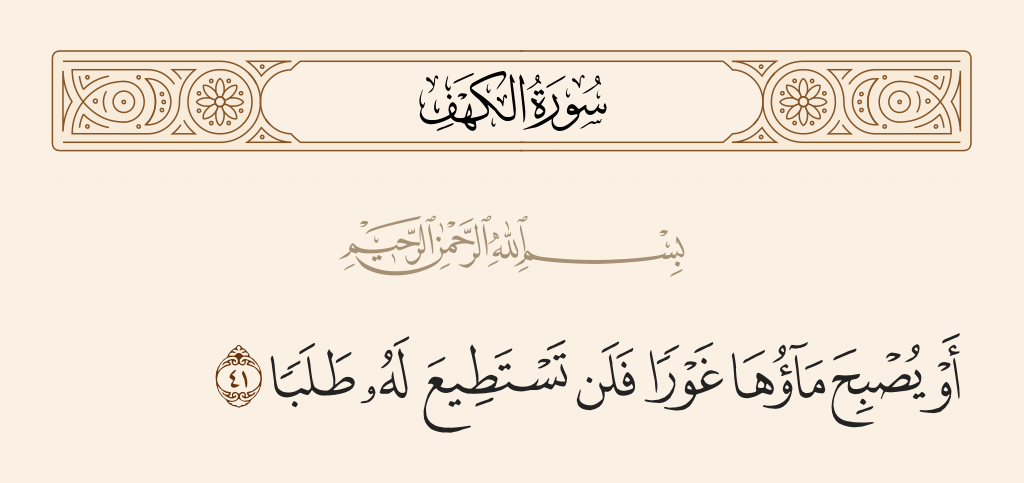 سُورَةُ الكَهۡفِ
بِسۡمِ ٱللَّهِ ٱلرَّحۡمَٰنِ ٱلرَّحِيمِ
أَوۡ يُصۡبِحَ مَآؤُهَا غَوۡرٗا فَلَن تَسۡتَطِيعَ لَهُۥ طَلَبٗا ٤١